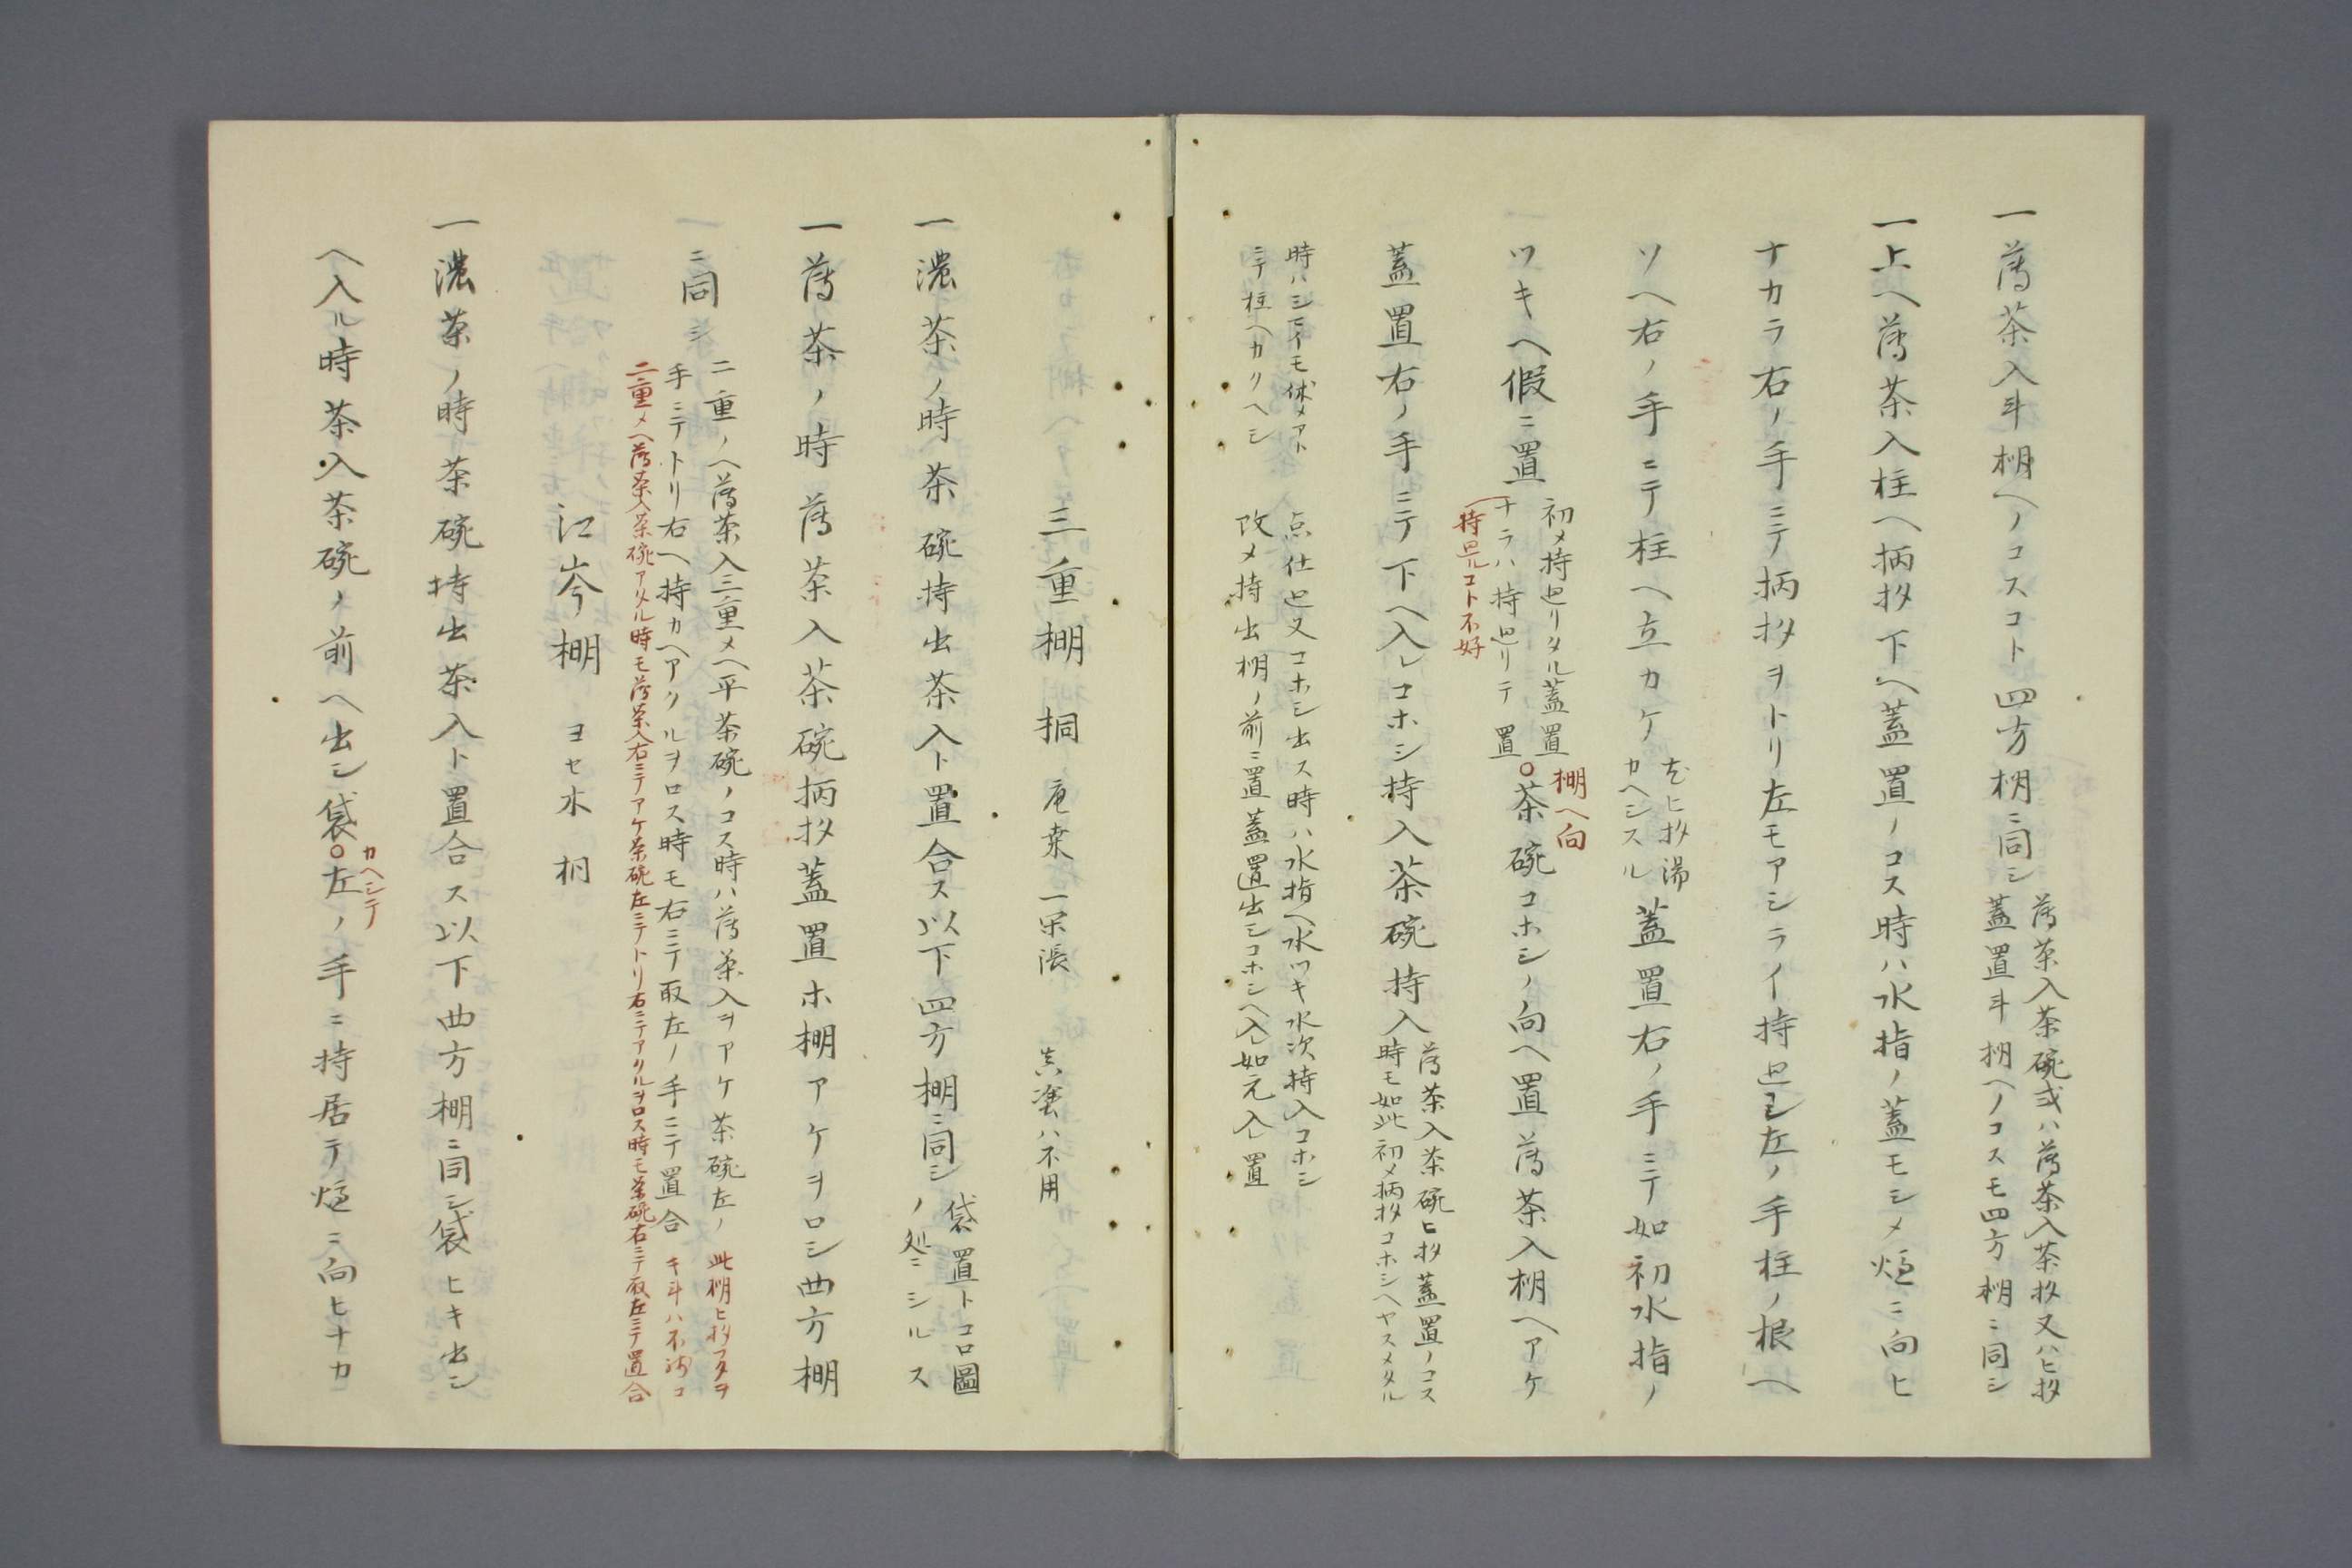 一薄茶入斗棚ヘノコスコト四方棚ニ同シ
薄茶入茶碗或ハ薄茶入茶杓又ハヒ杓
蓋置斗棚ヘノコスモ四方棚ニ同シ
一上ヘ薄茶入柱ヘ柄杓下ヘ蓋置ノコス時ハ水指ノ蓋モシメ炉ニ向ヒ
ナカラ右ノ手ニテ柄杓ヲトリ左モアシライ持左ノ手柱ノ根ヘ
ソヘ右ノ手ニテ柱ヘ立カケ
ヒ杓湯
カヘシスル
蓋置右ノ手ニテ如初水指ノ
ワキヘ假ニ置
初メ持リタル蓋置
ナラハ持リテ置
持ルコト不好
棚ヘ向
○茶碗コホシノ向ヘ置薄茶入棚ヘアケ
蓋置右ノ手ニテ下ヘ入レコホシ持入茶碗持入
薄茶入茶碗ヒ杓蓋置ノコス
時モ如此初メ柄杓コホシヘヤスメタル
時ハシテモ休メアト
ニテ柱ヘカクヘシ
点仕又コホシ出ス時ハ水指ヘ水ツキ水次持入コホシ
改メ持出棚ノ前ニ置蓋置出シコホシヘ入レ如元入レ置
三重棚 桐 庵桑 一閑張 真塗ハ不用
一濃茶ノ時茶碗持出茶入ト置合ス以下四方棚ニ同シ
袋置トコロ圖
ノ処ニシルス
一薄茶ノ時薄茶入茶碗柄杓蓋置ホ棚アケヲロシ四方棚
ニ同シ
二重ノヘ薄茶入三重メヘ平茶碗ノコス時ハ薄茶入ヲアケ茶碗左ノ
手ニテトリ右ヘ持カヘアクルヲロス時モ右ニテ取左ノ手ニテ置合
此棚ヒ杓フタヲ
キ斗ハ不飾コ
二重メヘ薄茶入茶碗アケル時モ薄茶入右ニテアケ茶碗左ニテトリ右ニテアクルヲロス時モ茶碗右ニテ取左ニテ置合
江岑棚 ヨセ木 桐
一濃茶ノ時茶碗持出茶入ト置合ス以下四方棚ニ同シ袋ヒキ出シ
ヘ入ル時茶入茶碗ノ前ヘ出シ袋○左ノ手ニ持居テ炉ニ向ヒナカ
カヘシテ